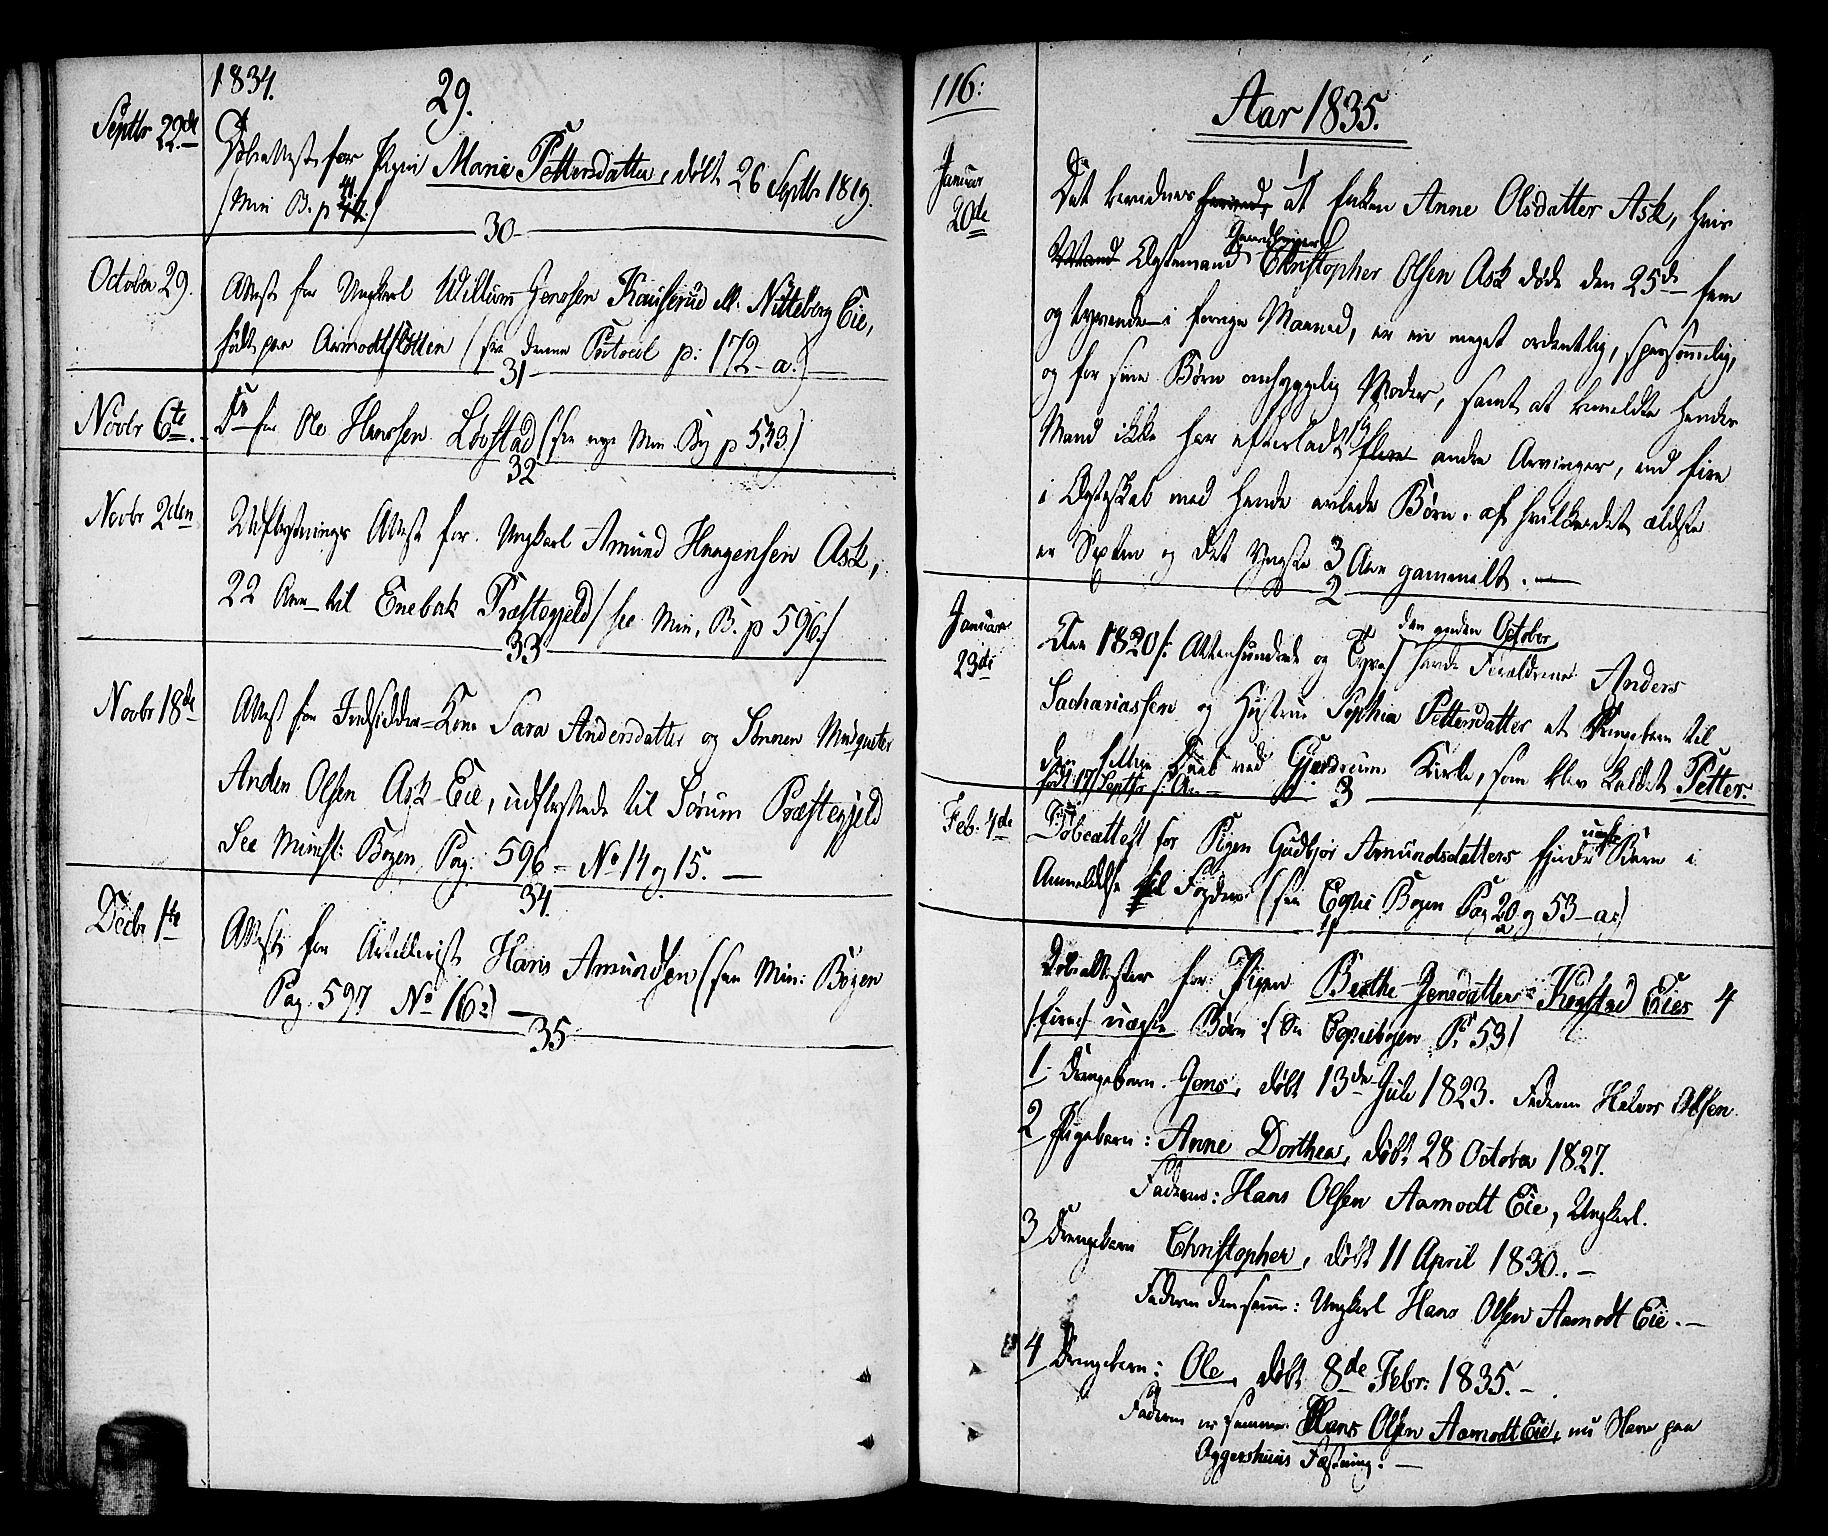 1834.
29.
Septbr 22de
Døbeattest for Pigen Marie Pettersdatter, døbt 26 Septbr 1819.
(Min B. p 41.)
30
October 29.
Attest for Ungkarl Willum Jenssen Kauserud ell. Nitteberg Eie,
født paa Aamodtsløtten (see denne Protocol p: 172-a.)
31
Novbr 6te
Do for Ole Hanssen Løvstad (see nye Min. Bog p 533)
32
Novbr 2den
Udflytnings Attest for Ungkarl Amund Haagensen Ask,
22 Aar til Enebak Præstegjeld (see Min. B. p 596.)
33
Novbr 18de
Attest for Indsidder-Kone Sara Andersdatter og Sønnen Musqueter
Anders Olsen Ask-Eie, udflyttede til Sørum Præstegjeld
See Minist: Bogen Pag: 596 - No 14 og 15. —
34.
Decbr 1te
Attest for Artillerist Hans Amundsen (see Min: Bogen
Pag. 597 No 16.) —
35
116:
Aar 1835.
1
Januar
20de
Det bevidnes herved, at Enken Anne Olsdatter Ask, hvis
Mand Egtemand Gaardbruger Christopher Olsen Ask døde den 25de fem
og tyvende i forrige Maaned, er en meget ordentlig, sparsommelig,
og for sine Børn omhyggelig Moder, samt at bemeldte hendes
Mand ikke har efterladt sig flere andre Arvinger, end fire
i Egteskab med hende avlede Børn, af hvilke det ældste
er Sexten og det Yngste 3 Aar gammelt. —
2
Januar
23de
Aar 1820 /: Attenhundrede og Tyve/ den anden October havde Forældrene Anders
Sachariassen og Hustrue Sophia Pettersdatter et Drengebarn til
den hellige Daab ved Gjerdrum Kirke, som blev kaldet Petter.
født 17 Septbr s: A. —
3
Feb: 4de
Døbeattest for Pigen Gudbjør Amundsdatters fjerde uægte Barn i
Anmeldelse til Fogden (see Copie Bogen Pag 20 og 53-a.)
4
Døbeattester for Pigen Berthe Jensdatter Kogstad Eies 4
/:fire:/ uægte Børn :(See Copiebogen P: 53)
1. Drengebarn Jens, døbt 13de Juli 1823. Faderen Halvor Olsen.
2 Pigebarn: Anne Dorthea, døbt 28 October 1827.
Faderen: Hans Olsen Aamodt Eie, Ungkarl.
3 Drengebarn Christopher, døbt 11 April 1830. —
Faderen den samme: Ungkarl Hans Olsen Aamodt Eie. —
4 Drengebarn: Ole, døbt 8de Febr: 1835. —
Faderen er samme Hans Olsen Aamodt Eie, nu Slave paa
Aggershuus Fæstning. —